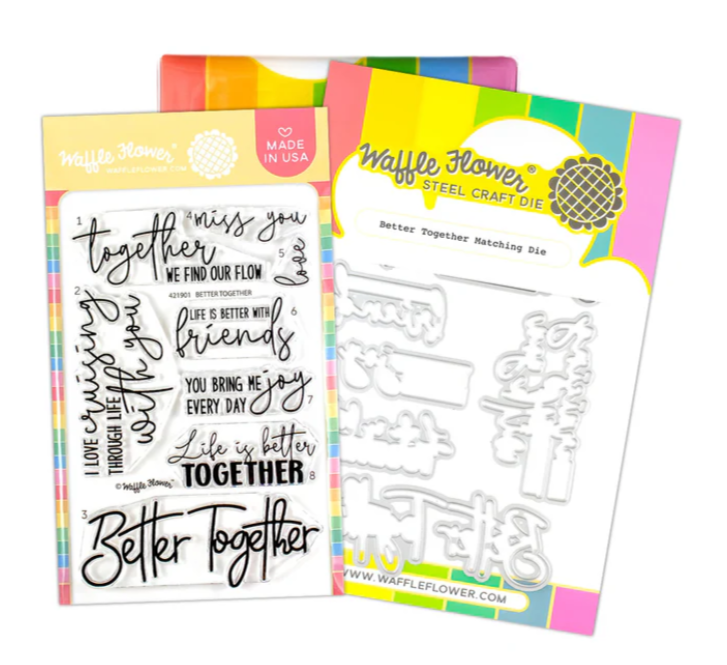 Waffle Flower®
WAFFLEFLOWER.COM
MADE
IN USA
1
together
WE FIND OUR FLOW
4
miss you
5
love
2
I LOVE cruising
THROUGH LIFE
with you
421901 BETTER TOGETHER
LIFE IS BETTER WITH
6
friends
YOU BRING ME joy
EVERY DAY
7
Life is better
TOGETHER
8
© Waffle Flower®
3
Better Together
Waffle Flower®
STEEL CRAFT DIE
Better Together Matching Die
WWW.WAFFLEFLOWER.COM